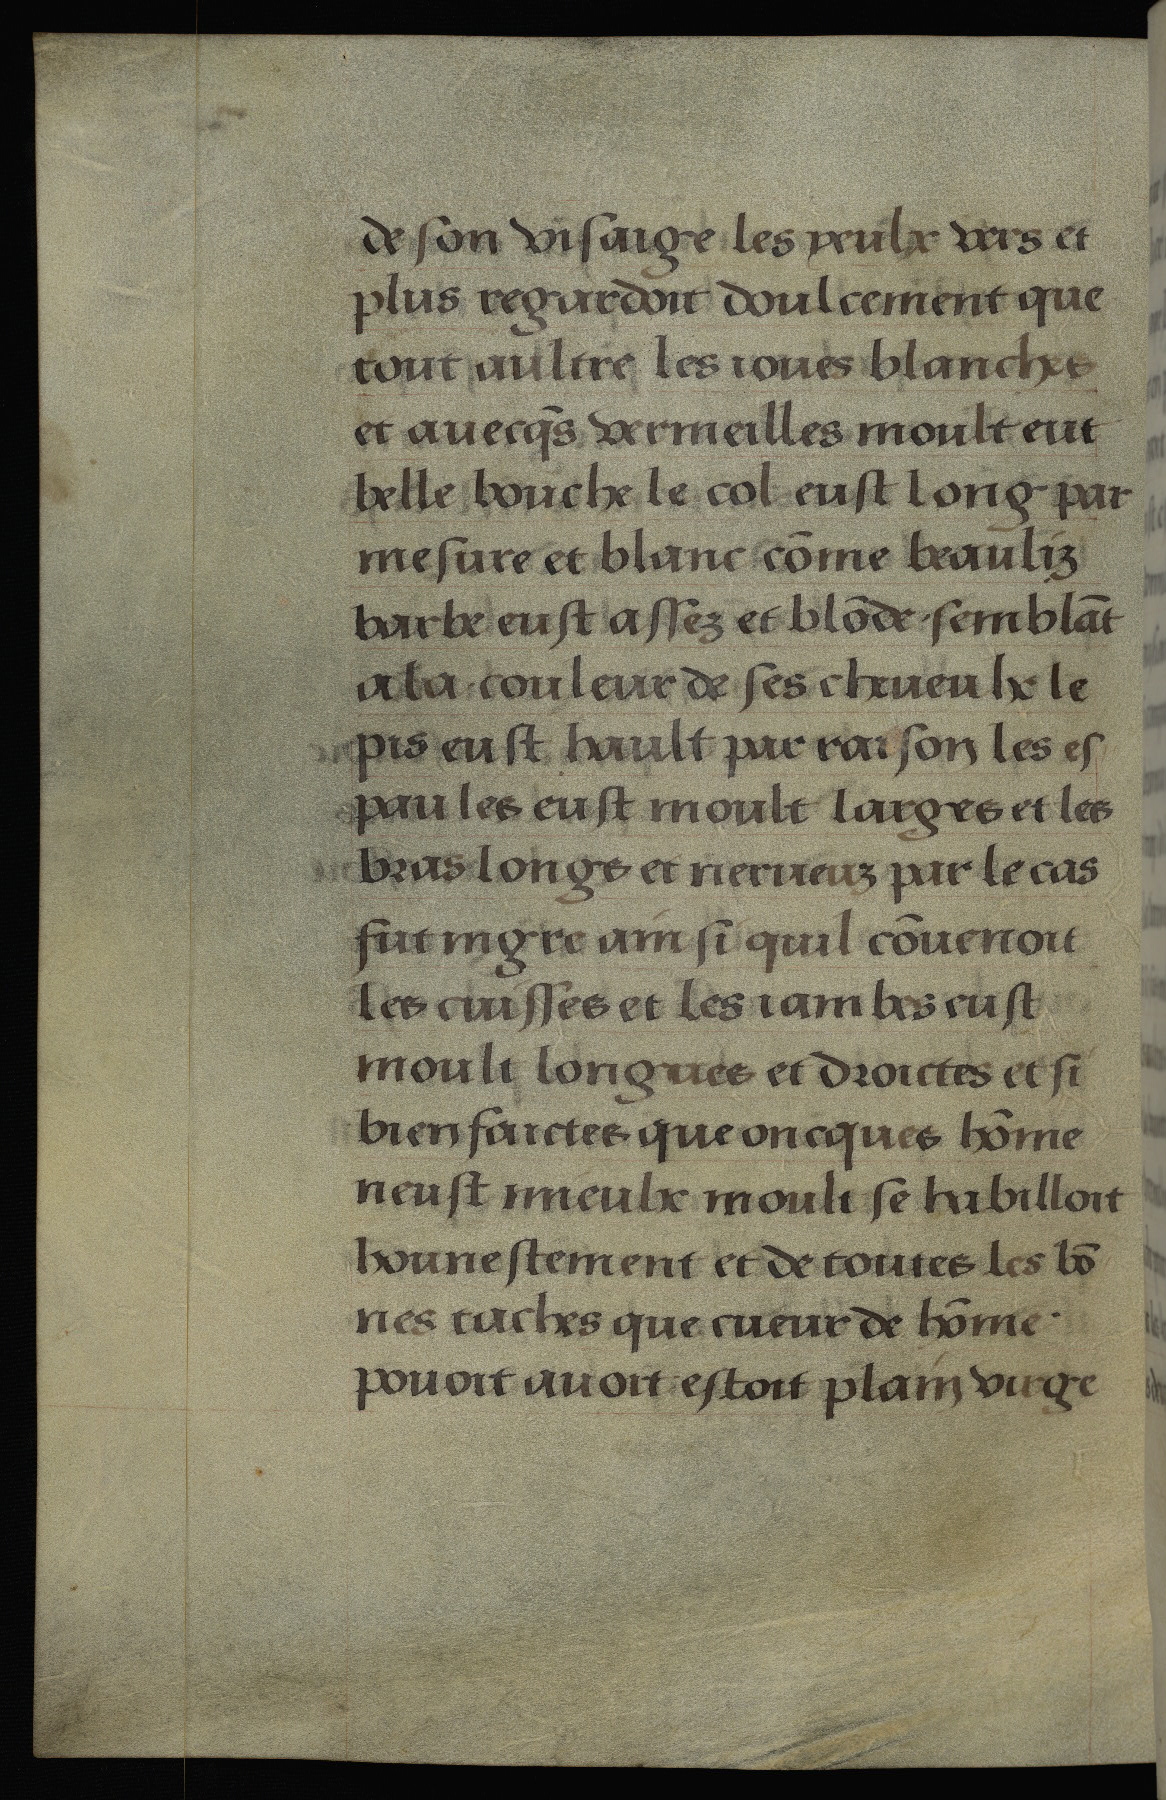 de son visaige les yeulx vers et
plus regardoit doulcement que
tout aultre les ioues blanches
et auecq̃s vermeilles moult eut
belle bouche le col eust long par
mesure et blanc cõme beauliz
barbe eust assez et blõde semblãt
a la couleur de ses cheueulx le
pis eust hault par raison les es
paules eust moult larges et les
bras longs et nerueuz par le cas
fut mgre ainsi quil cõuenoit
les cuisses et les iambes eust
moult longues et droictes et si
bien faictes que oncques hõme
neust mieulx moult se habilloit
hounestement et de toutes les bõ
nes taches que cueur de hõme
pouoit auoit estoit plain virge